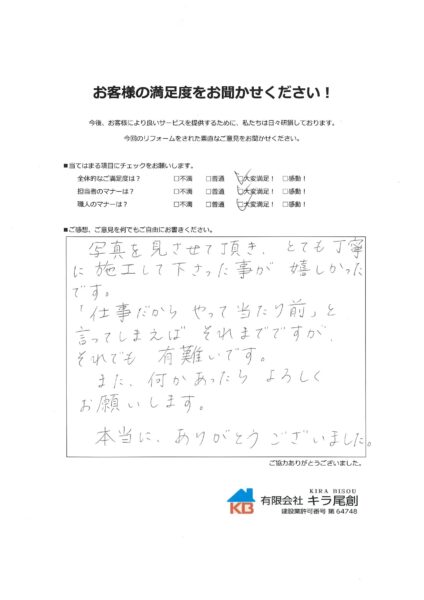 お客様の満足度をお聞かせください！
今後、お客様により良いサービスを提供するために、私たちは日々研鑽しております。
今回のリフォームをされた素直なご意見をお聞かせください。
■当てはまる項目にチェックをお願いします。
全体的なご満足度は？ □不満 □普通 ☑大変満足！ □感動！
担当者のマナーは？ □不満 □普通 ☑大変満足！ □感動！
職人のマナーは？ □不満 □普通 ☑大変満足！ □感動！
■ご感想、ご意見を何でもご自由にお書きください。
写真を見させて頂き、とても丁寧
に施工して下さった事が嬉しかった
です。
「仕事だからやって当たり前」と
言ってしまえばそれまでですが、
それでも有難いです。
また、何かあったらよろしく
お願いします。
本当に、ありがとうございました。
ご協力ありがとうございました。
KIRA BISOU
KB 有限会社 キラ尾創
建設業許可番号 第64748